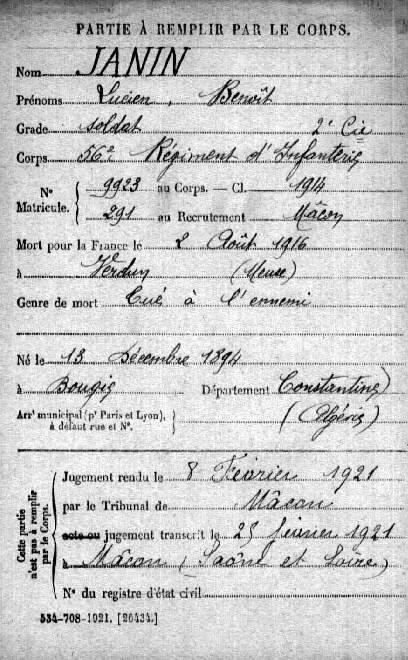 PARTIE À REMPLIR PAR LE CORPS.
Nom JANIN
Prénoms Lucien, Benoît
Grade soldat 2e Cie
Corps 56e Régiment d'Infanterie
N° Matricule. { 9923 au Corps. — Cl. 1914
291 au Recrutement Mâcon
Mort pour la France le 2 Août 1916
à Verdun (Meuse)
Genre de mort Tué à l'ennemi
Né le 13 Décembre 1894
à Bougie Département Constantine
Arrt municipal (pr Paris et Lyon), à défaut rue et N°. } (Algérie)
Cette partie n'est pas à remplir par le Corps.
Jugement rendu le 8 Février 1921
par le Tribunal de Mâcon
acte ou jugement transcrit le 25 février 1921
à Mâcon (Saône et Loire)
N° du registre d'état civil
534-708-1921. [26434.]